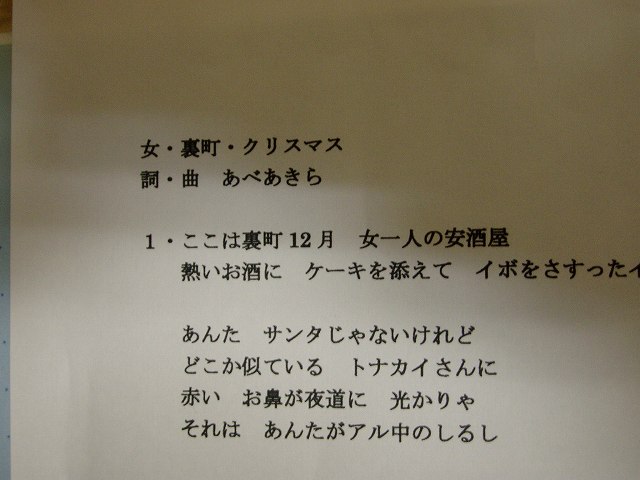 女・裏町・クリスマス
詞・曲　あべあきら
1・ここは裏町12月　女一人の安酒屋
熱いお酒に　ケーキを添えて　イボをさすったイ
あんた　サンタじゃないけれど
どこか似ている　トナカイさんに
赤い　お鼻が夜道に　光かりゃ
それは　あんたがアル中のしるし